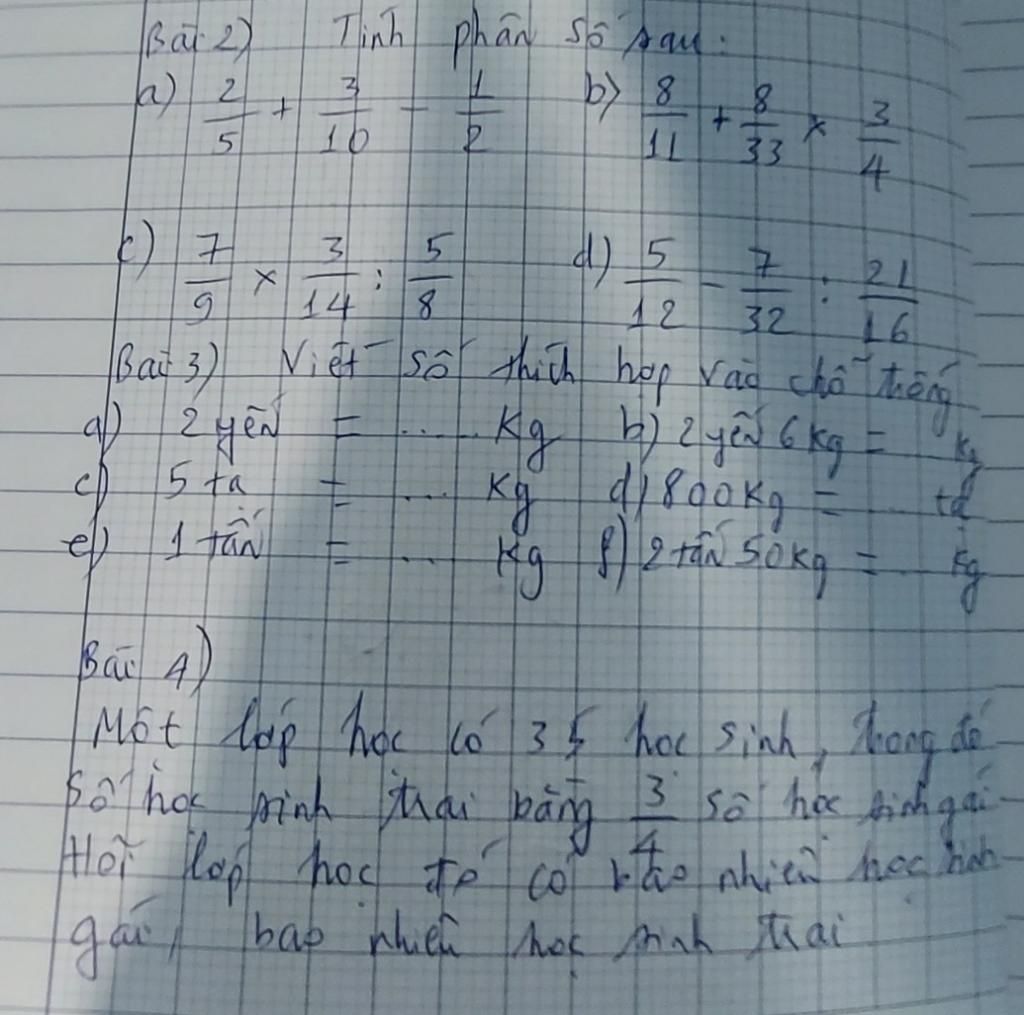 Bài 2) Tính phân số sau:
a) 2/5 + 3/10 - 1/2 b) 8/11 + 8/33 × 3/4
c) 7/9 × 3/14 : 5/8 d) 5/12 - 7/32 : 21/16
Bài 3) Viết số thích hợp vào chỗ trống
a) 2 yến = ..... Kg b) 2 yến 6 kg = kg
c) 5 tạ = ... Kg d) 800 Kg = ... tạ
e) 1 tấn = ... Kg f) 2 tấn 50 kg = ... kg
Bài 4)
Một lớp học có 35 học sinh, trong đó
số học sinh trai bằng 3/4 số học sinh gái
Hỏi lớp học đó có bao nhiêu học sinh
gái, bao nhiêu học sinh trai